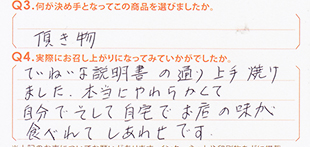 Q3.何が決め手となってこの商品を選びましたか。
頂き物
Q4.実際にお召し上がりになってみていかがでしたか。
ていねいな説明書の通り上手く焼け
ました。本当にやわらかくて
自分でそして自宅でお店の味が
食べれてしあわせです。